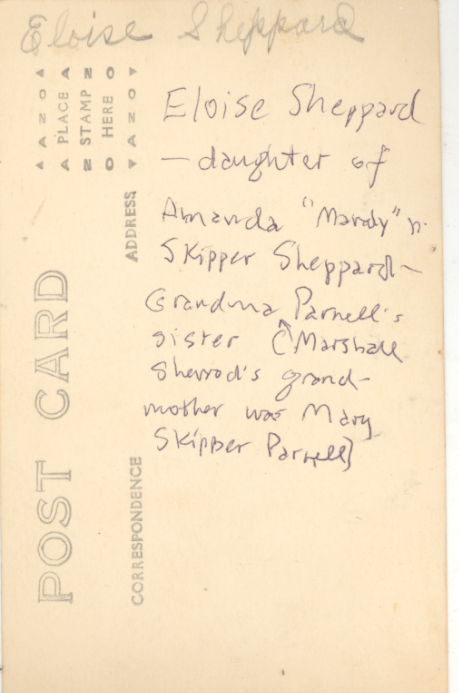 Eloise Sheppard
Eloise Sheppard
— daughter of
Amanda "Mandy"
Skipper Sheppard —
Grandma Parnell's
sister (Marshall
Sherrod's grand-
mother was Mary
Skipper Parnell)
POST CARD
CORRESPONDENCE
ADDRESS
AZO
PLACE
STAMP
HERE
AZO